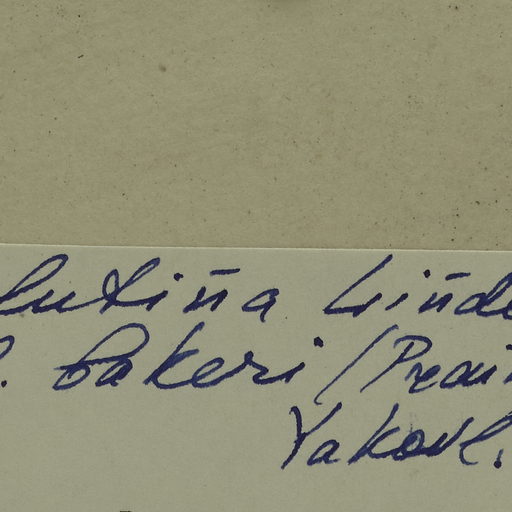 lutina Linde
bakeri (Prain
Yakovl.